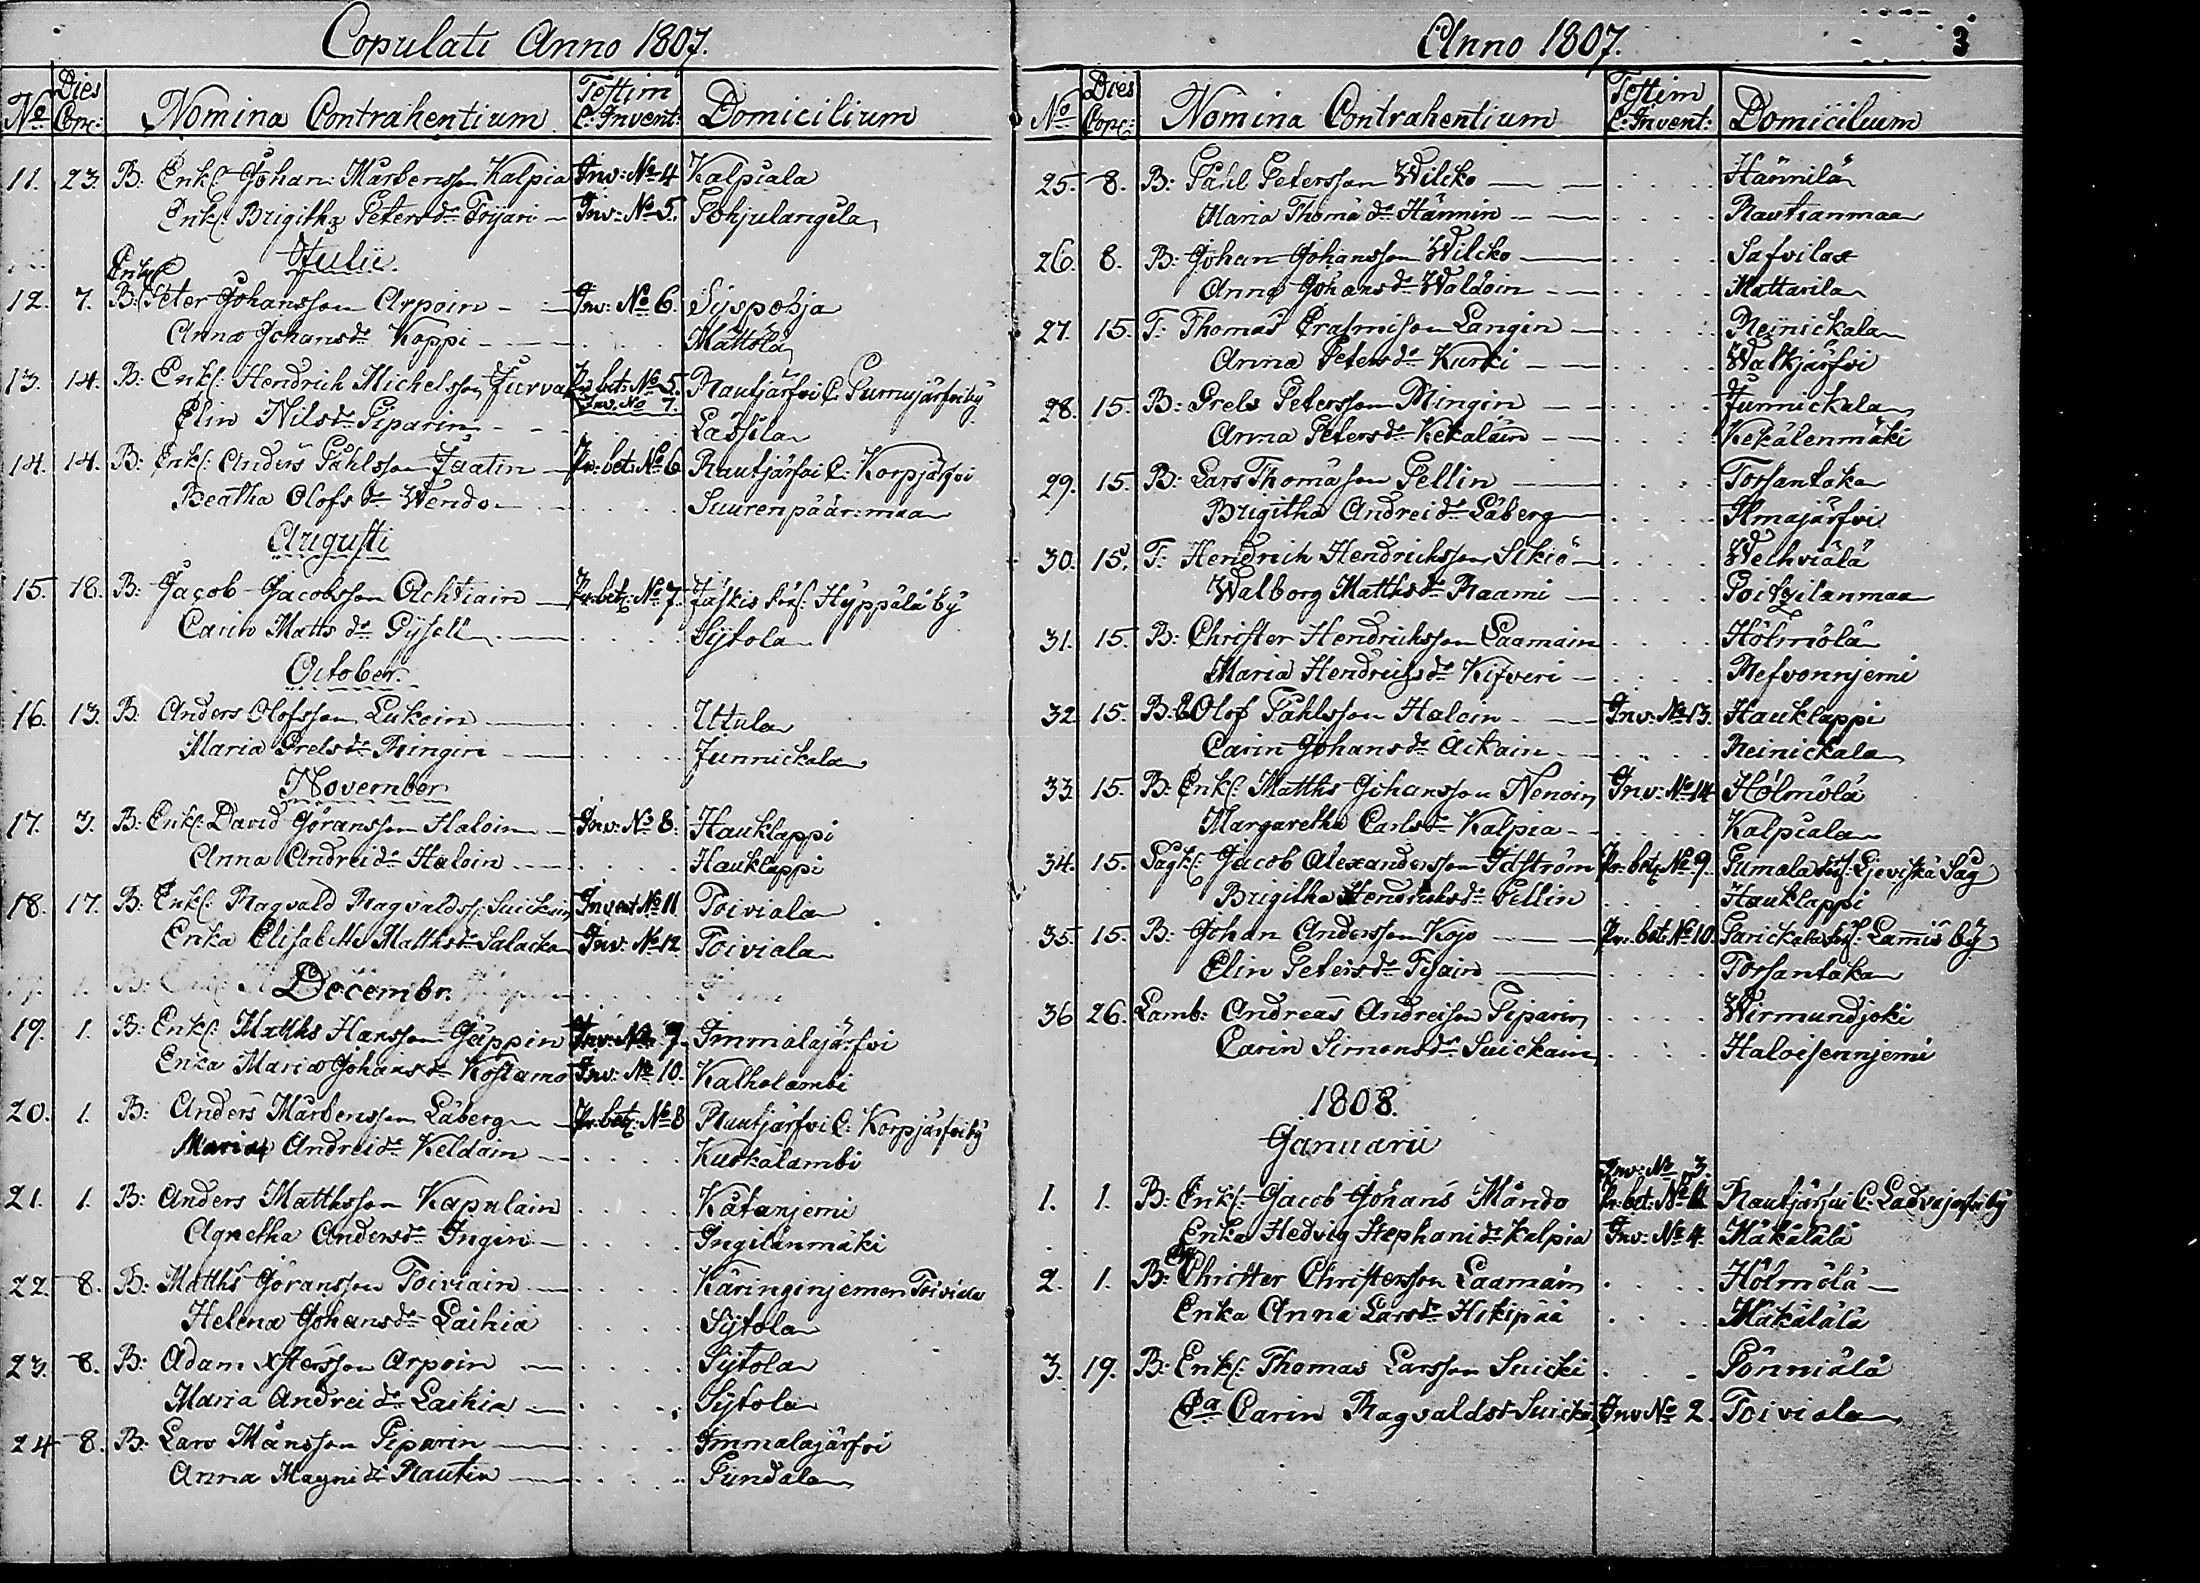 Copulati Anno 1807.
No Dies Cop: Nomina Contrahentium Testim C: Invent: Domicilium
11. 23. B: Enkl: Johan Mårtensson Kalpia Inv: No 4 Kalpiala
Enkl: Brigitha Petersdr Inv: No 5. Pohjulangila
Julii.
Enkl
12. 7. B: Peter Johansson Arpoin Inv: No 6. Syspohja
Anna Johansdr Koppi Mattola
13. 14. B: Enkl: Hendrich Michelsson Jurva Pr: bet: No 5. Rautjärfvi C. Purnujärfvi by
Inv. No 7.
Elin Nilsdr Piparin Lässila
14. 14. B: Enkl: Anders Påhlsson Jaatin Pr: bet: No 6 Rautjärfvi C: Korpjärfvi
Beatha Olofsdr Wendo Suurenpäänmaa
Augusti
15. 18. B: Jacob Jacobsson Achtiain Pr: bet: No 7. Jäskis Hyppälä by
Carin Mattsdr Pysell Syjtola
October.
16. 13. B: Anders Olofsson Lukoin Uttula
Maria Prelsdr Ringin Junnickala
November
17. 3. B: Enkl: David Göransson Haloin Inv: No 8. Hauklappi
Anna Andreidr Haloin Hauklappi
18. 17. B: Enkl: Ragvald Ragvaldss: Suickain Invent No 11 Toiviala
Enka Elisabeth Matthsdr Salacka Inv: No 12. Toiviala
Decembr.
19. 1. B: Enkl: Matths Hansson Gäppin Inv: No 9. Immalajärfvi
Enka Maria Johansdr Kostamo Inv: No 10. Kalholambi
20. 1. B: Anders Mårtensson Läberg Pr: bet: No 8 Rautjärfvi C: Korpjärfvi by
Maria Andreidr Keldain Kurkälambi
21. 1. B: Anders Matthsson Kapulain Kätänjemi
Agnetha Andersdr Ingin Ingilänmäki
22. 8. B: Matths Göransson Toiviain Käringinjemen Toiviala
Helena Johansdr Laihia Syjtola
23. 8. B: Adam Arpoin Syjtola
Maria Andreidr Laihia Syjtola
24 8. B: Lars Månsson Piparin Immalajärfvi
Anna Magnidr Rautin Pundala
Anno 1807. 3
No Dies Cop: Nomina Contrahentium Testim C: Invent: Domicilium
25. 8. B: Påhl Petersson Wilcko Hännilä
Maria Thomædr Hännin Rautianmaa
26. 8. B: Johan Johansson Wilcko Safvilax
Anna Johansdr Waldoin Mattarila
27. 15. T: Thomas Erasmisson Langin Reinickala
Anna Petersdr Kurki Walkjärfvi
28. 15. B: Prels Petersson Ringin Junnickala
Anna Petersdr Kekäläin Kekälenmäki
29. 15. B: Lars Thomæson Pellin Torsantaka
Brigitha Andreidr Läberg Ilmajärfvi
30. 15. T: Hendrich Hendrichsson Sikiö Welhviälä
Walborg Matthsdr Raami
31. 15. B: Christer Hendrichsson Laamain Hölmölä
Maria Hendrichsdr Kifveri Refvonnjemi
32. 15. B: Olof Påhlsson Haloin Inv: No 13. Hauklappi
Carin Johansdr Äikäin Reinickala
33. 15. B: Enkl: Matths Johansson Nenoin Inv: No 14 Hölmölä
Margaretha Carlsdr Kalpia Kalpiala
34. 15. Sågk: Jacob Alexandersson Idström Pr: bet: No 9. Sumala Såg
Brigitha Hendrichsdr Pellin Hauklappi
35. 15. B: Johan Andersson Kojo Pr: bet: No 10. Parickala by
Elin Petersdr Torsantaka
36 26. Lamb: Andreas Andreison Piparin Wirmundjoki
Carin Simonsdr Suickain Haloisennjemi
1808.
Januarii
Inv: No 3.
1. 1. B: Enkl: Jacob Johans Måndo Pr: bet: No 11 Rautjärfvi C: by
Enka Hedvig Stephanidr Kalpia Inv: No 4. Mäkälälä
2. 1. B: Christer Christersson Laamain Hölmölä
Enka Anna Larsdr Hikipää Mäkälälä
3. 19. B: Enkl: Thomas Larsson Suicki Pönniälä
Carin Ragvaldsdr Suicka Inv No 2. Toiviala